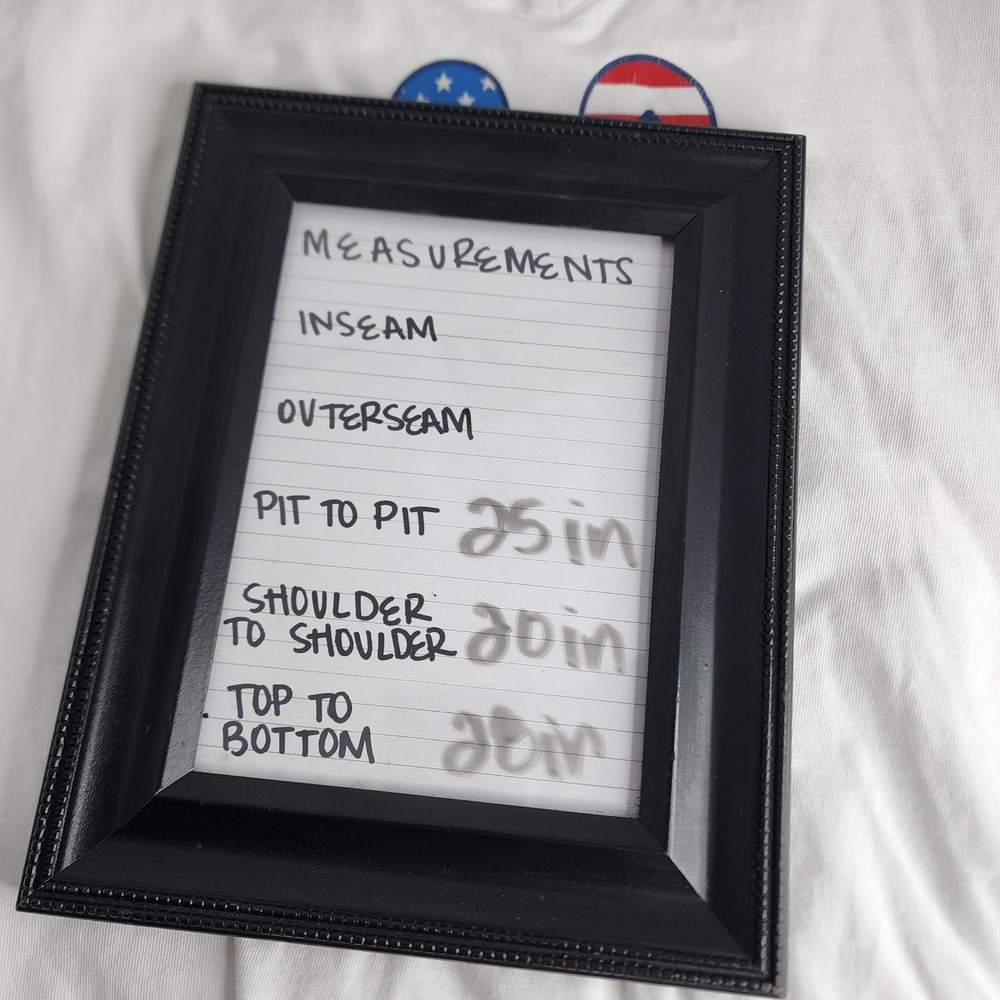 MEASUREMENTS
INSEAM
OUTERSEAM
PIT TO PIT 25 in
SHOULDER
TO SHOULDER 20 in
TOP TO
BOTTOM in